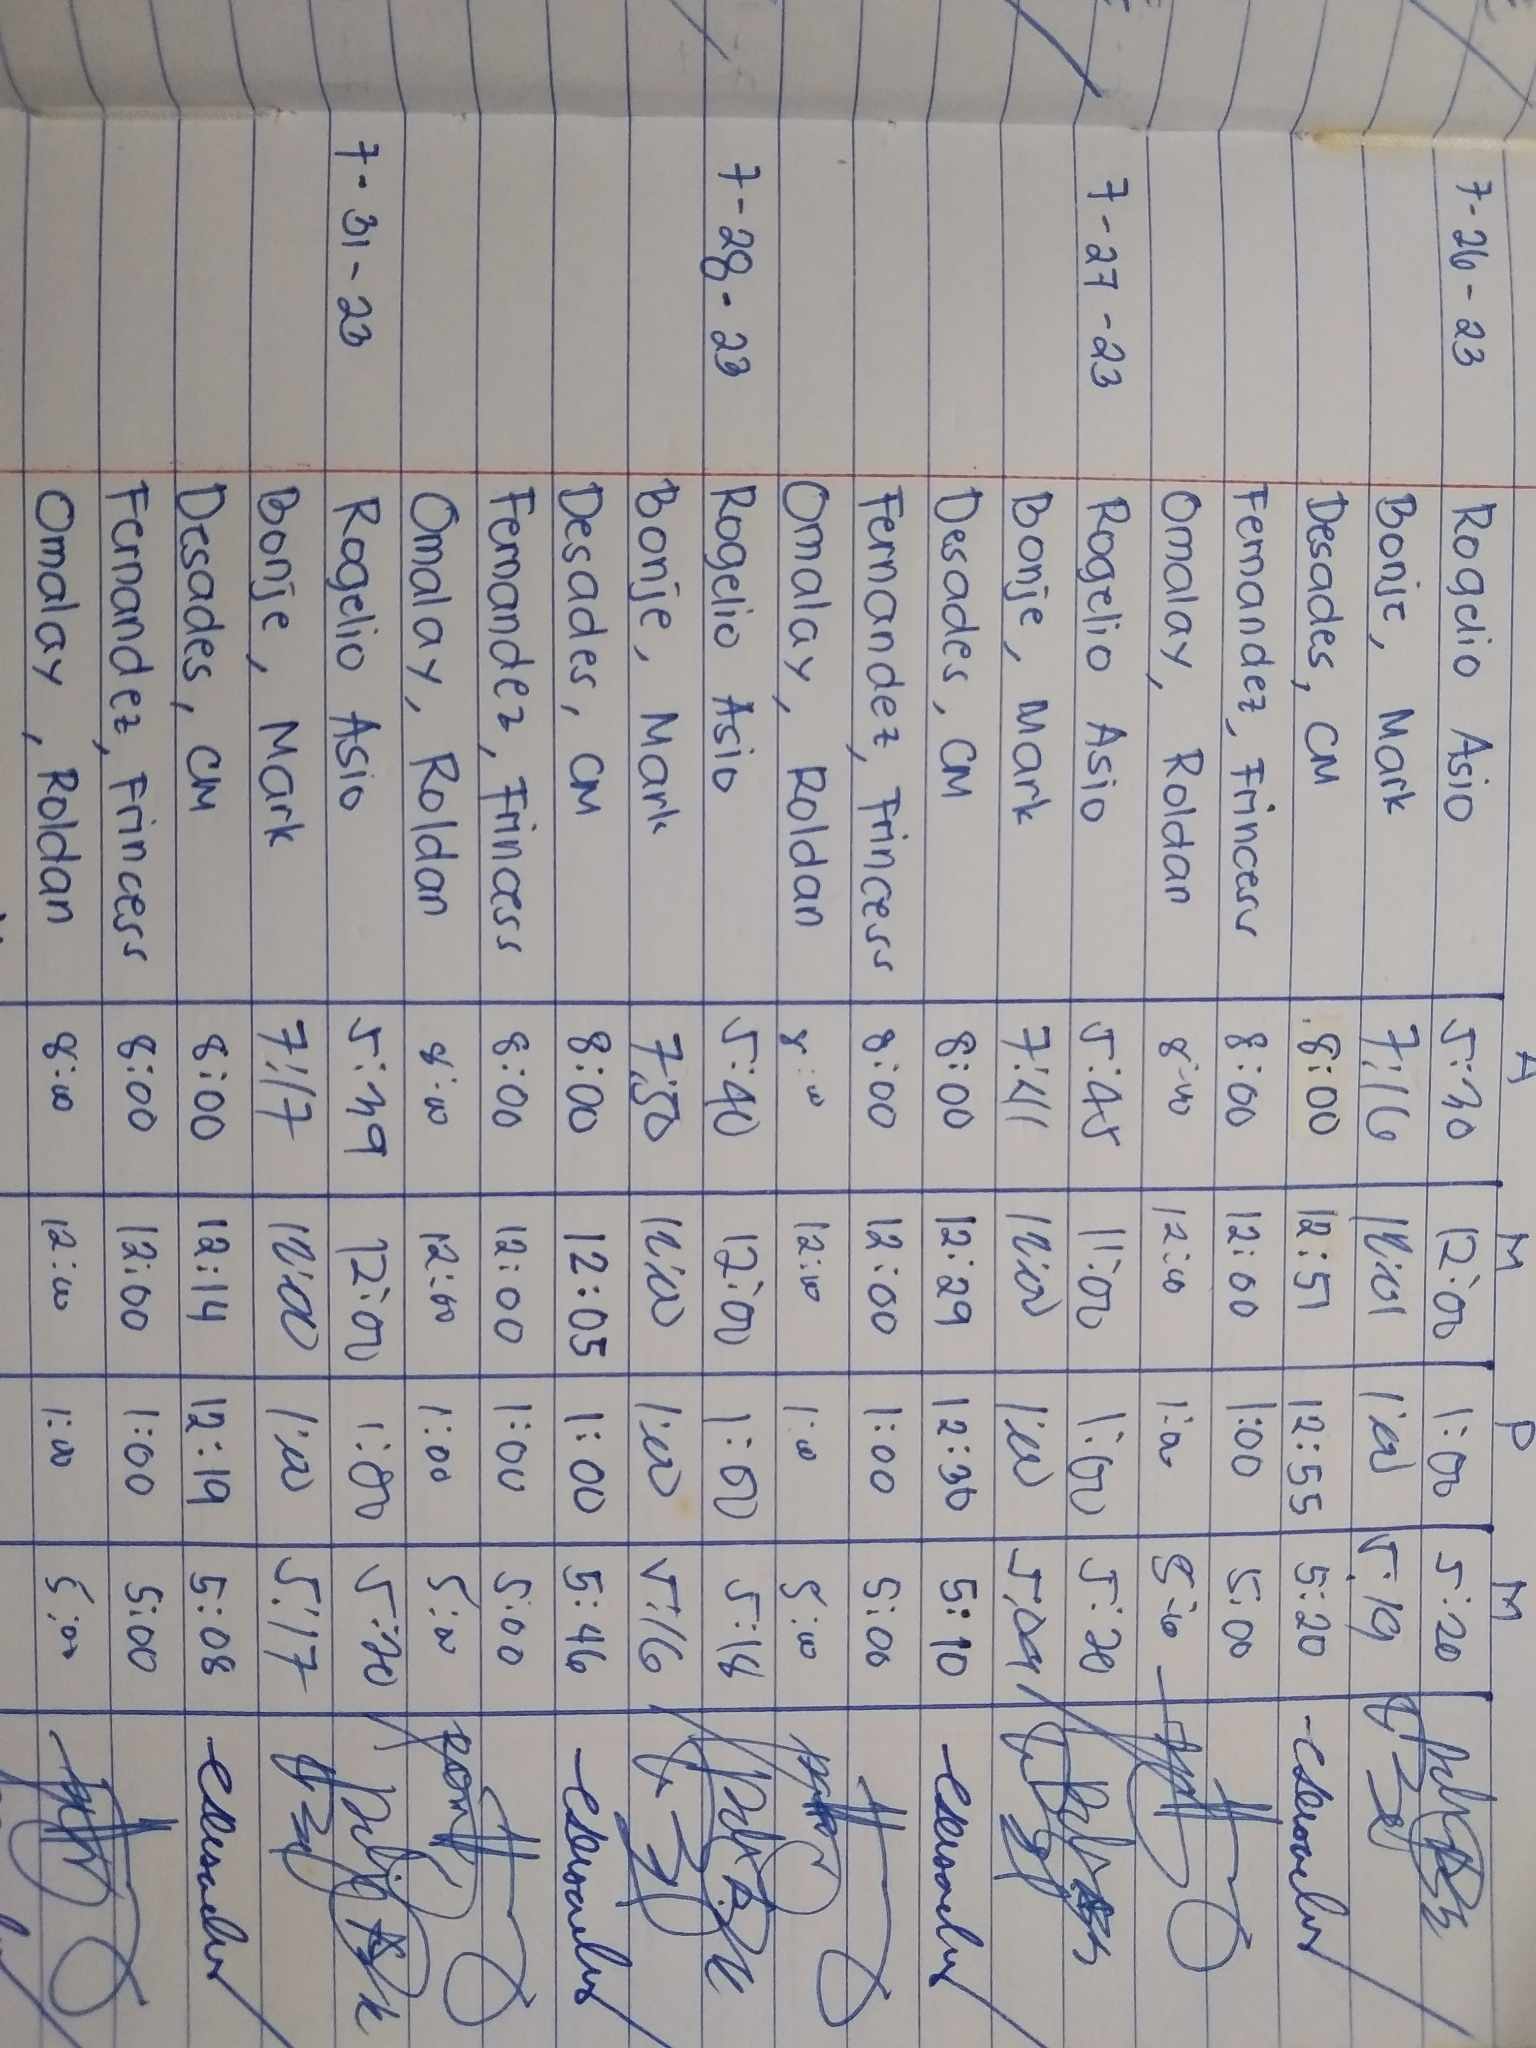 A M P M
7-26-23 Rogelio Asio 5:30 12:00 1:00 5:20
Bonje, Mark 7:16 12:00 1:00 5:19
Desades, CM 8:00 12:51 12:55 5:20
Fernandez, Frincess 8:00 12:00 1:00 5:00
Omalay, Roldan 8:00 12:00 1:00 5:00
7-27-23 Rogelio Asio 5:45 11:00 1:00 5:20
Bonje, Mark 7:41 12:00 1:00 5:09
Desades, CM 8:00 12:29 12:30 5:10
Fernandez, Frincess 8:00 12:00 1:00 5:00
Omalay, Roldan 8:00 12:00 1:00 5:00
7-28-23 Rogelio Asio 5:40 12:00 1:00 5:18
Bonje, Mark 7:50 12:00 1:00 5:16
Desades, CM 8:00 12:05 1:00 5:46
Fernandez, Frincess 8:00 12:00 1:00 5:00
Omalay, Roldan 8:00 12:00 1:00 5:00
7-31-23 Rogelio Asio 5:39 12:00 1:00 5:20
Bonje, Mark 7:17 12:00 1:00 5:17
Desades, CM 8:00 12:14 12:19 5:08
Fernandez, Frincess 8:00 12:00 1:00 5:00
Omalay, Roldan 8:00 12:00 1:00 5:00